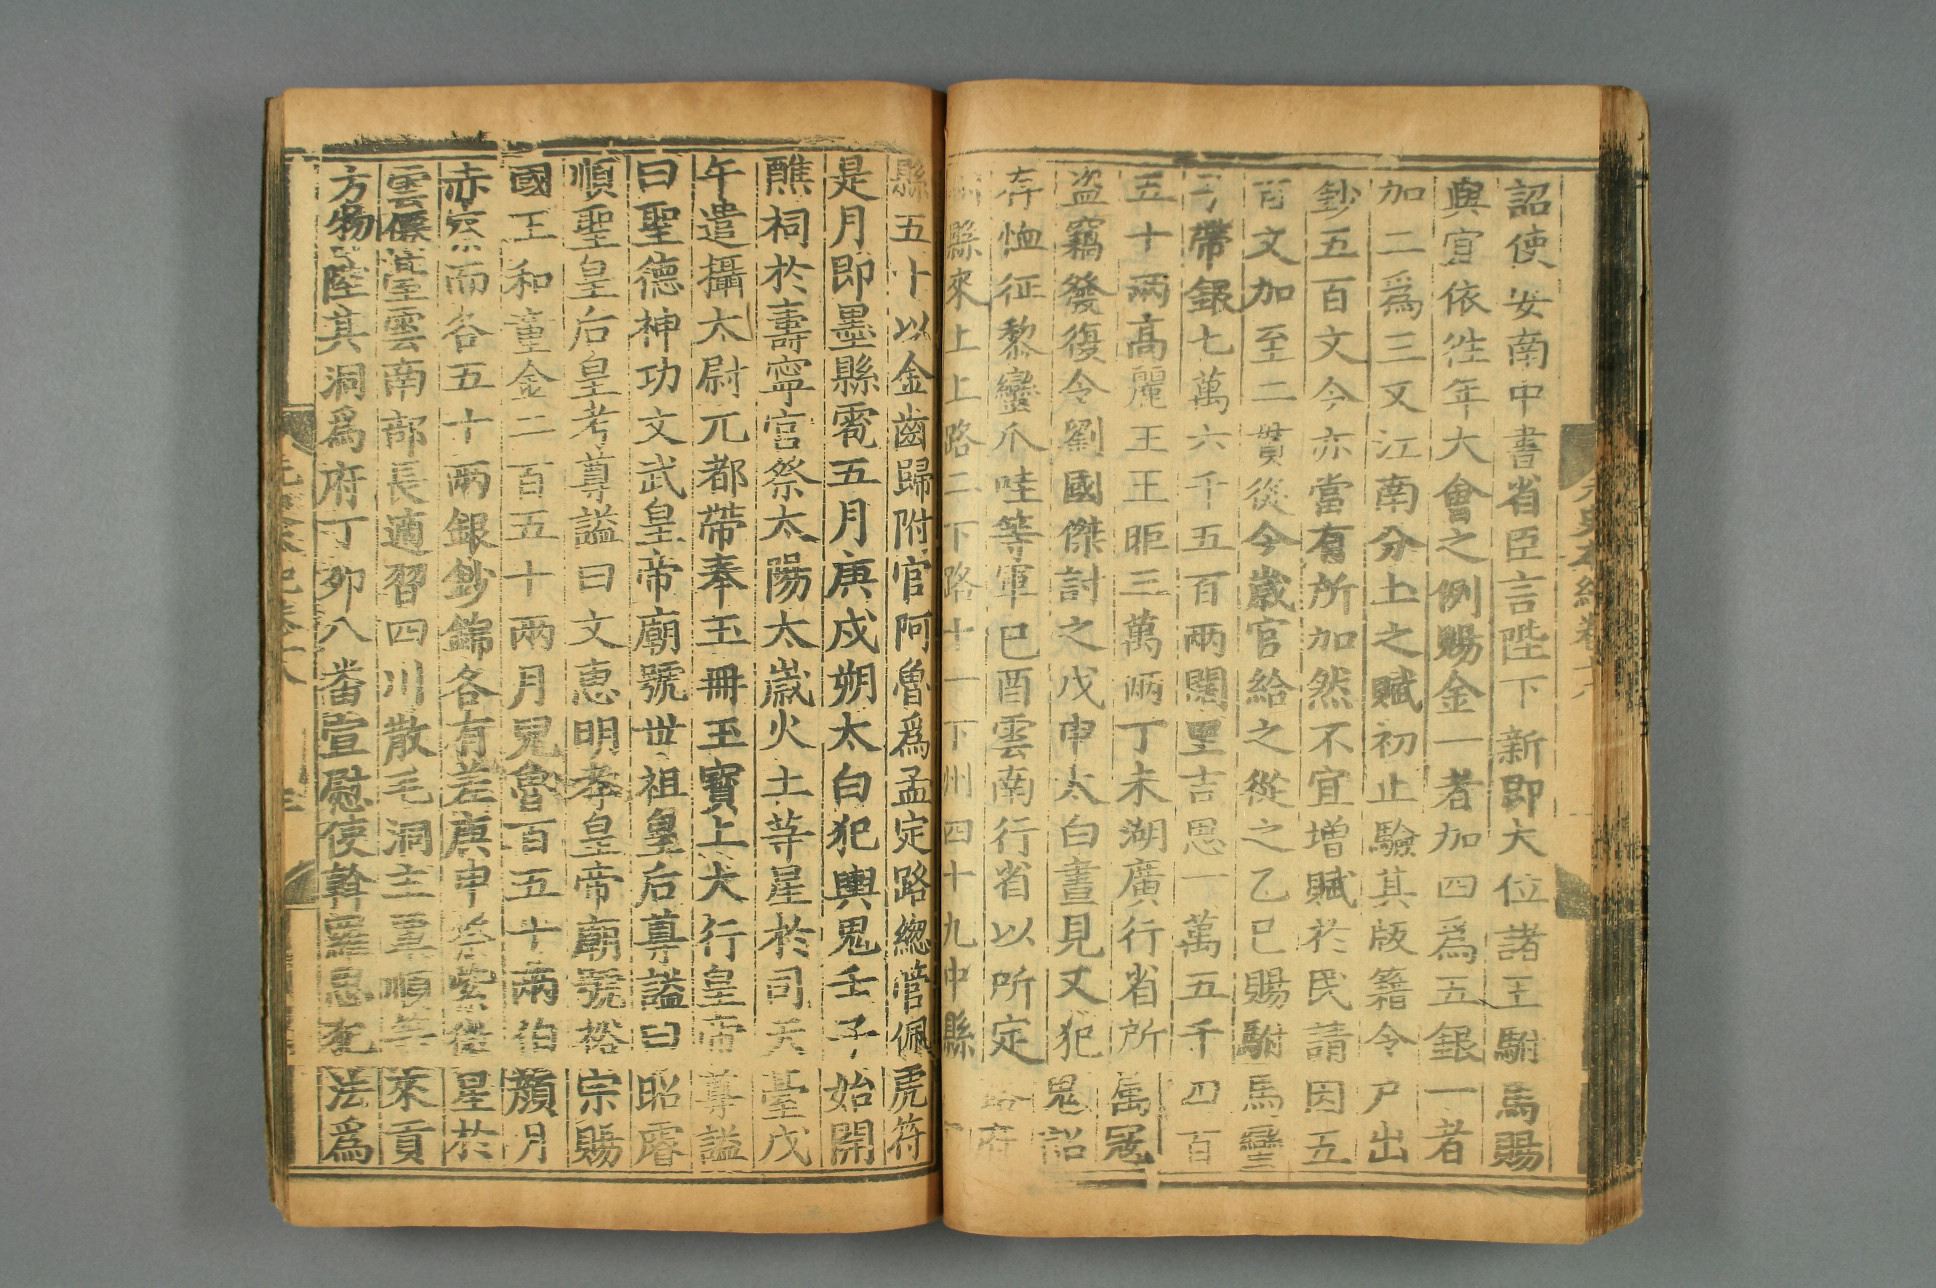 詔使安南中書省臣言陛下新即大位諸王駙馬賜
與宜依徃年大會之例賜金一者加四爲五銀一者
加二爲三又江南分土之賦初止驗其版籍令户出
鈔五百文今亦當有所加然不宜增賦於民請因五
百文加至二貫從今歲官給之從之乙巳賜駙馬蠻
子帶銀七萬六千五百兩闊里吉思一萬五千四百
五十兩高麗王王昛三萬兩丁未湖廣行省所屬寇
盗竊發復令劉國傑討之戊申太白晝見又犯鬼詔
存恤征黎蠻爪哇等軍己酉雲南行省以所定路府
州縣來上上路二下路十一下州四十九中縣一下
縣五十以金齒歸附官阿魯爲孟定路總管佩虎符
是月即墨縣雹五月庚戌朔太白犯輿鬼壬子始開
醮祠於壽寧宮祭太陽太歲火土等星於司天臺戊
午遣攝太尉兀都帶奉玉冊玉寶上大行皇帝尊謚
曰聖德神功文武皇帝廟號世祖皇后尊謚曰昭睿
順聖皇后皇考尊謚曰文惠明孝皇帝廟號裕宗賜
國王和童金二百五十兩月兒魯百五十兩伯顏月
赤察而各五十兩銀鈔錦各有差庚申祭紫微星於
雲僊臺雲南部長適習四川散毛洞主覃順等來貢
方物陞其洞爲府丁卯八番宣慰使斡羅思犯法爲
元史本紀卷十八